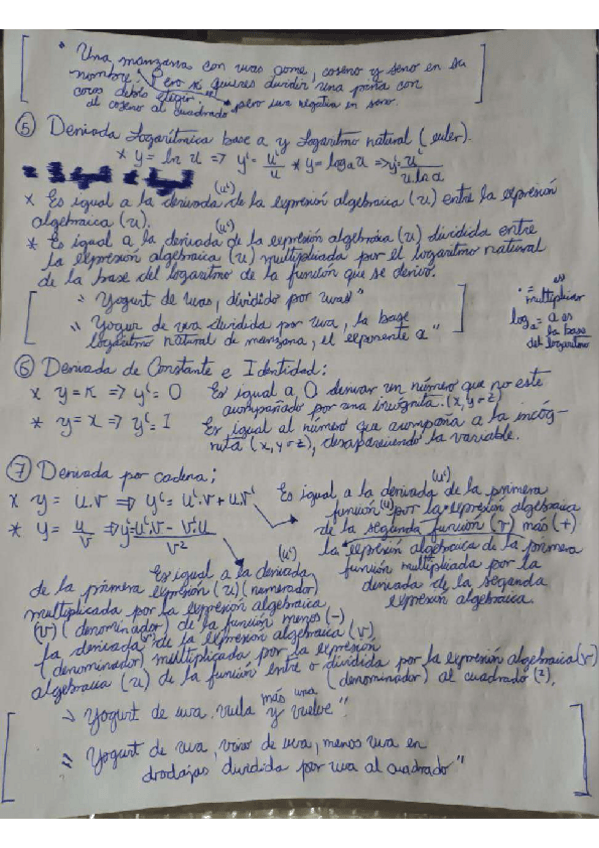 " Una manzana con uvas come, coseno y seno en su
nombre, Pero si quieres dividir una piña con
cocos debes elegir,
al coseno al cuadrado, pero sea negativa en seno.
⑤ Derivada Logarítmica base a y Logaritmo natural (euler).
* y = ln u => y' = u'/u * y = logₐ u => y' = u'/u.ln a
(u')
* Es igual a la derivada de la expresión algebraica (u) entre la expresión
algebraica (u).
(u')
* Es igual a la derivada de la expresión algebraica (u) dividida entre
la expresión algebraica (u) multiplicada por el logaritmo natural
de la base del logaritmo de la función que se derivo.
" Yogurt de uvas, dividido por uvas"
" Yogur de uva dividida por uva, la base
logaritmo natural de manzana, el exponente a"
· = es
multiplicar
logₐ = a es
la base
del logaritmo
⑥ Derivada de Constante e Identidad:
* y = K => y' = 0 Es igual a 0 derivar un número que no este
acompañado por una incógnita. (x, y o z)
* y = x => y' = 1 Es igual al número que acompaña a la incóg-
nita (x, y o z), desapareciendo la variable.
⑦ Derivada por cadena;
* y = u.v => y' = u'.v + u.v'
* y = u/v => y' = u'.v - v'.u / v²
(u')
Es igual a la derivada de la primera
función (u) por la expresión algebraica
de la segunda función (v) más (+)
la expresión algebraica de la primera
función multiplicada por la
derivada de la segunda
expresión algebraica.
(u')
Es igual a la derivada
de la primera expresión (u) (numerador)
multiplicada por la expresión algebraica
(v) (denominador) de la función menos (-)
la derivada (v') de la expresión algebraica (v)
(denominador) multiplicada por la expresión
algebraica (u) de la función entre o dividida por la expresión algebraica (v)
(denominador) al cuadrado (²).
más una
" Yogurt de uva. y vuelve".
" Yogurt de uva, de uva, menos uva en
dividida por uva al cuadrado"